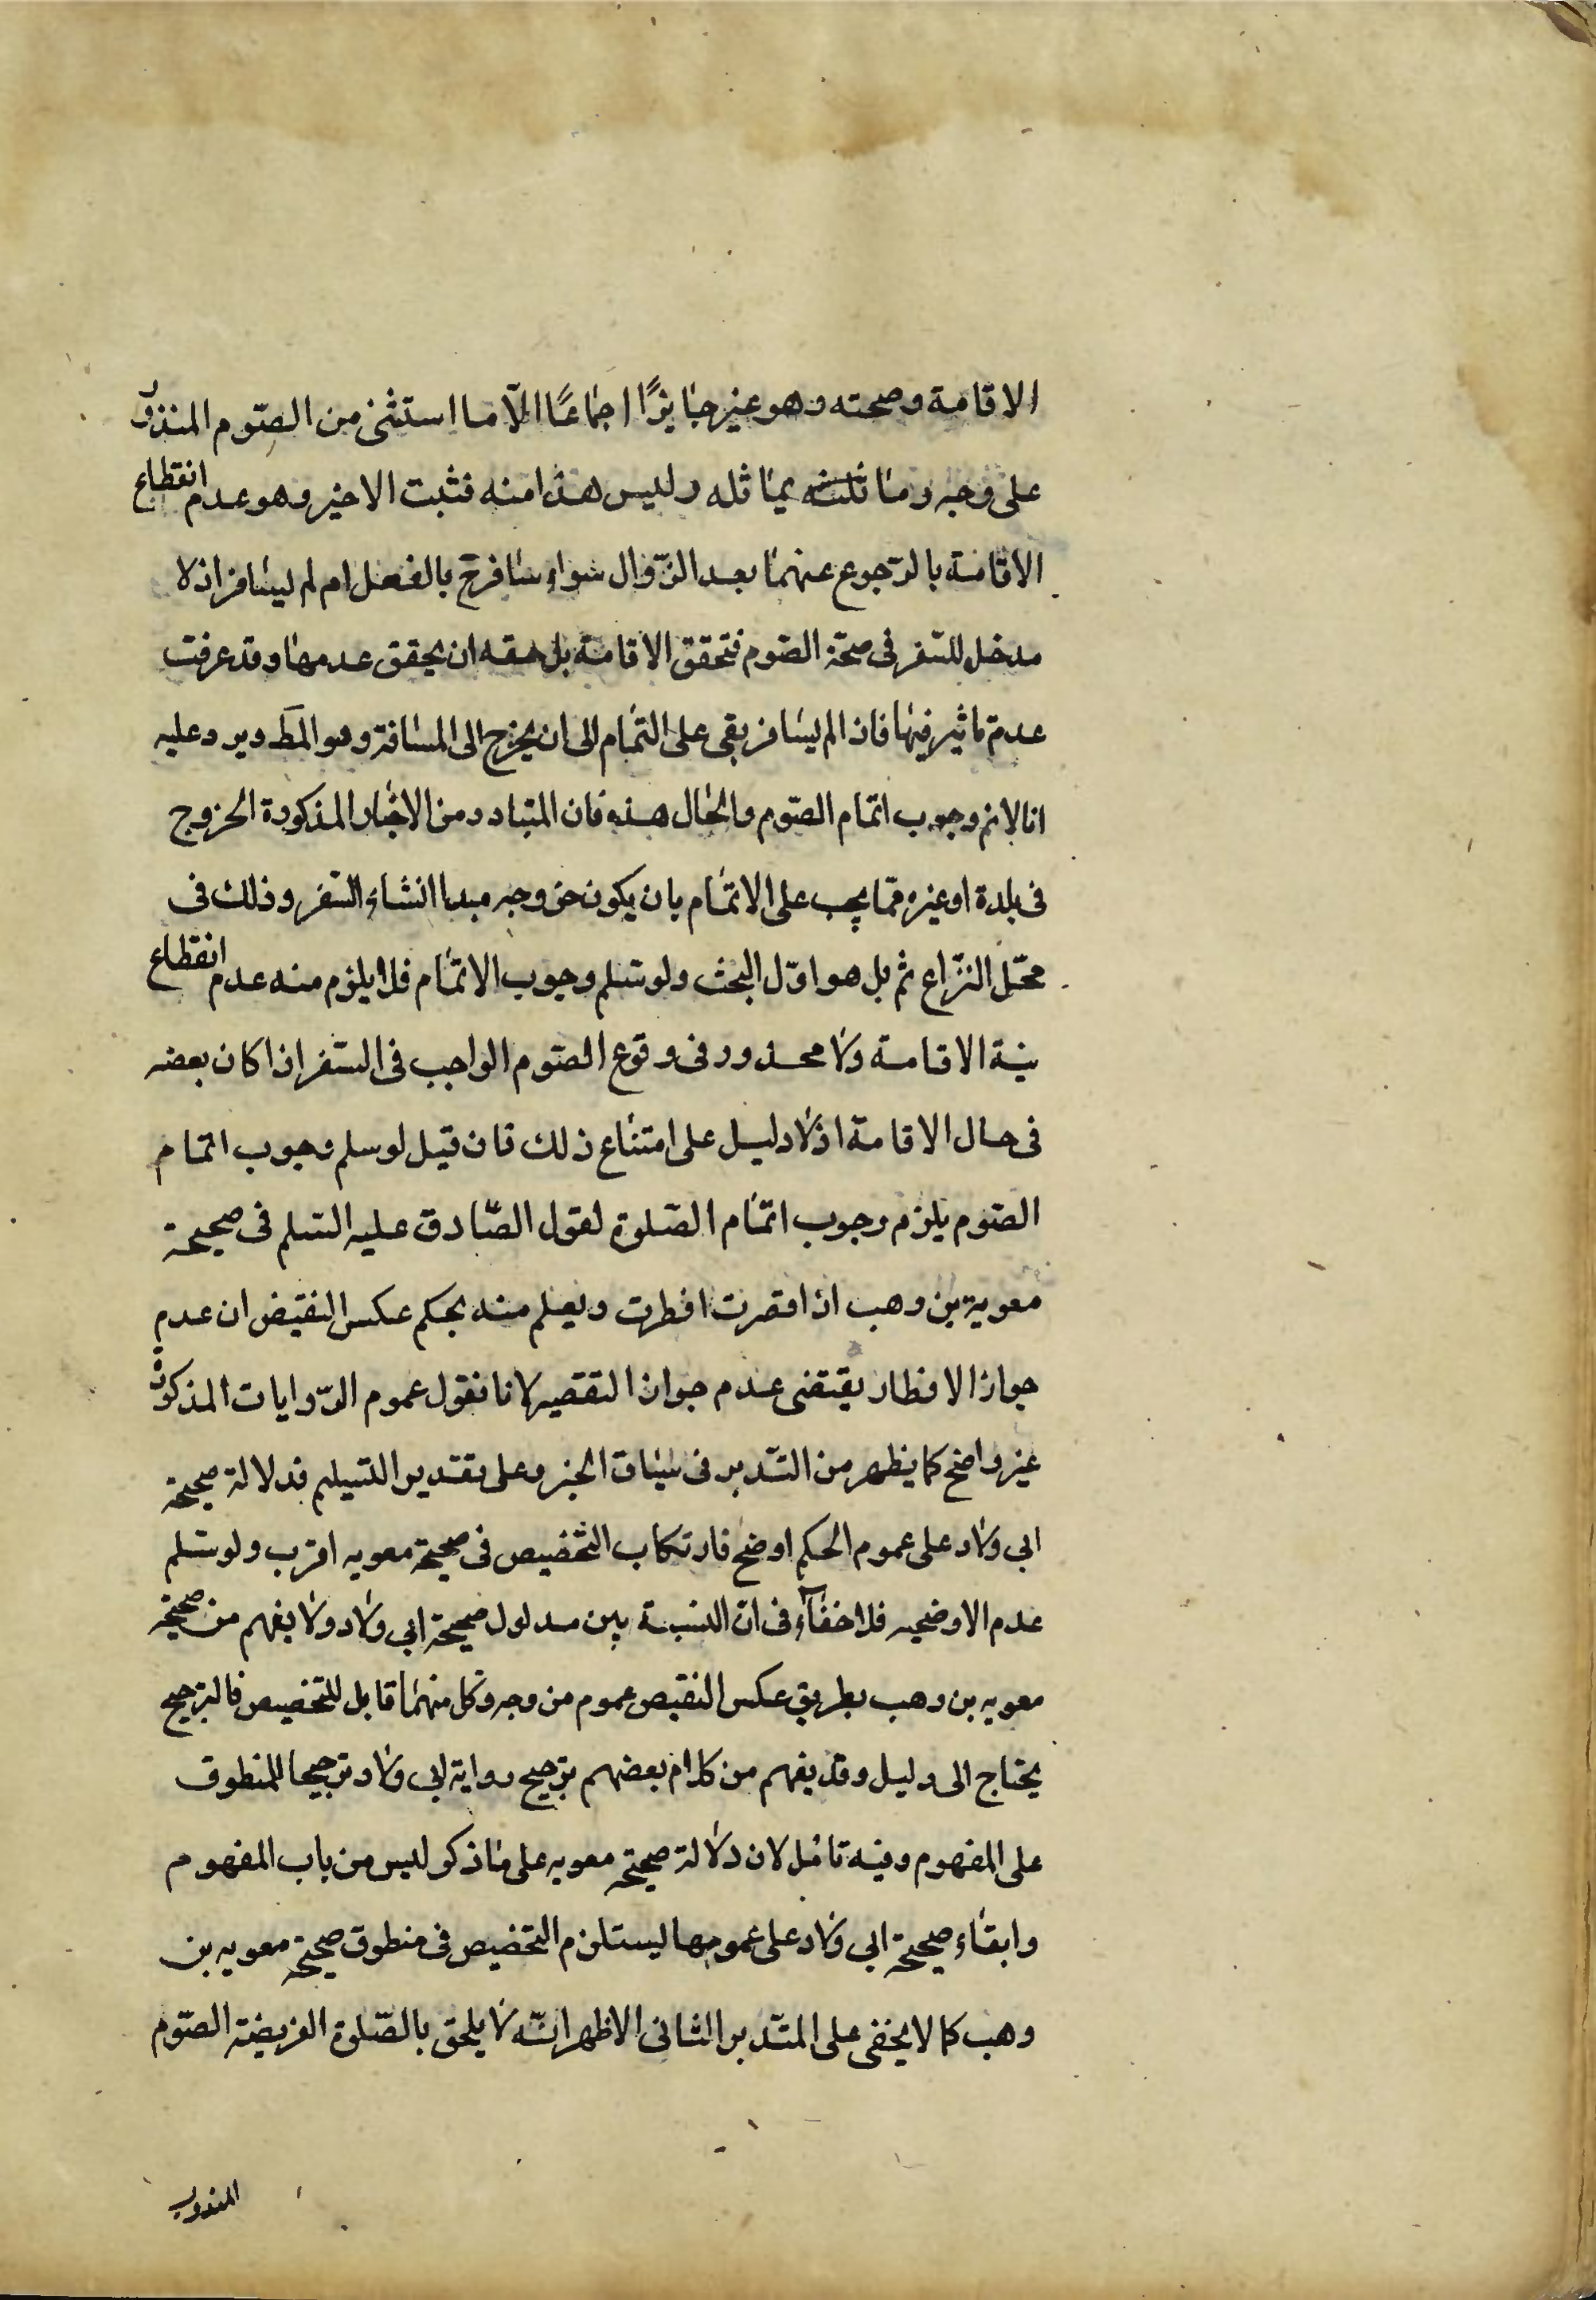 الاقامة وصحته وهو غير جايزًا اجماعًا الّا ما استثنى من الصّوم المنذور
على وجه وما ثلثه يماثله وليس هذا منه فثبت الاخير وهو عدم انقطاع
الاقامة بالرّجوع عنهما بعد الزّوال سواء سافر ح بالفعل ام لم يسافر اذ لا
مدخل للسّفر فى صحّة الصّوم فتحقق الاقامة بل حقه ان يحقق عدمها وقد عرفت
عدم تاثير فيها فاذا لم يسافر بقى على التمام الى ان يخرج الى المسافة وهو المط ويرد عليه
انا لانم وجوب اتمام الصّوم والحال هذه فان المتبادر من الاخبار المذكورة الخروج
فى بلدة او غيره ممّا يجب على الاتمام بان يكون خروجه مبدا انشاء السّفر وذلك فى
محّل النزّاع ثم بل هو اوّل البحث ولو سّلم وجوب الاتمام فلا يلزم منه عدم انقطاع
نيّة الاقامة ولا محذور فى وقوع الصّوم الواجب فى السّفر اذا كان بعضه
فى حال الاقامة اذ لا دليل على امتناع ذلك فان قيل لو سلم وجوب اتمام
الصّوم يلزم وجوب اتمام الصّلوة لقول الصّادق عليه السّلم فى صحيحة
معوية بن وهب اذا قصرت افطرت ويعلم منه بحكم عكس النقيض ان عدم
جواز الافطار يقتضى عدم جواز التقصير لانا نقول عموم الرّوايات المذكورة
غير واضح كما يظهر من التّدبر فى سياق الخبر وعلى تقدير التسيلم فدلالة صحيحة
ابى ولاد على عموم الحكم اوضح فارتكاب التّخصيص فى صحيحة معويه اقرب ولو سّلم
عدم الاوضحيه فلا خفاء فى انّ النسبة بين مدلول صحيحة ابى ولاد ولا يفهم من صحيحة
معويه بن وهب بطريق عكس النقيض عموم من وجه وكل منهما قابل للتخصيص فالترجيح
يحتاج الى دليل وقد يفهم من كلام بعضهم ترجيح رواية ابى ولاد ترجيحا للمنطوق
على المفهوم وفيه تامّل لان دلالة صحيحة معويه على ما ذكر ليس من باب المفهوم
وابقاء صحيحة ابى ولاد على عمومها ليستلزم التخصيص فى منطوق صحيحة معويه بن
وهب كما لا يخفى على المتّدبر الثانى الاظهر انّه لا يلحق بالصّلوة الفريضة الصّوم
المندوب